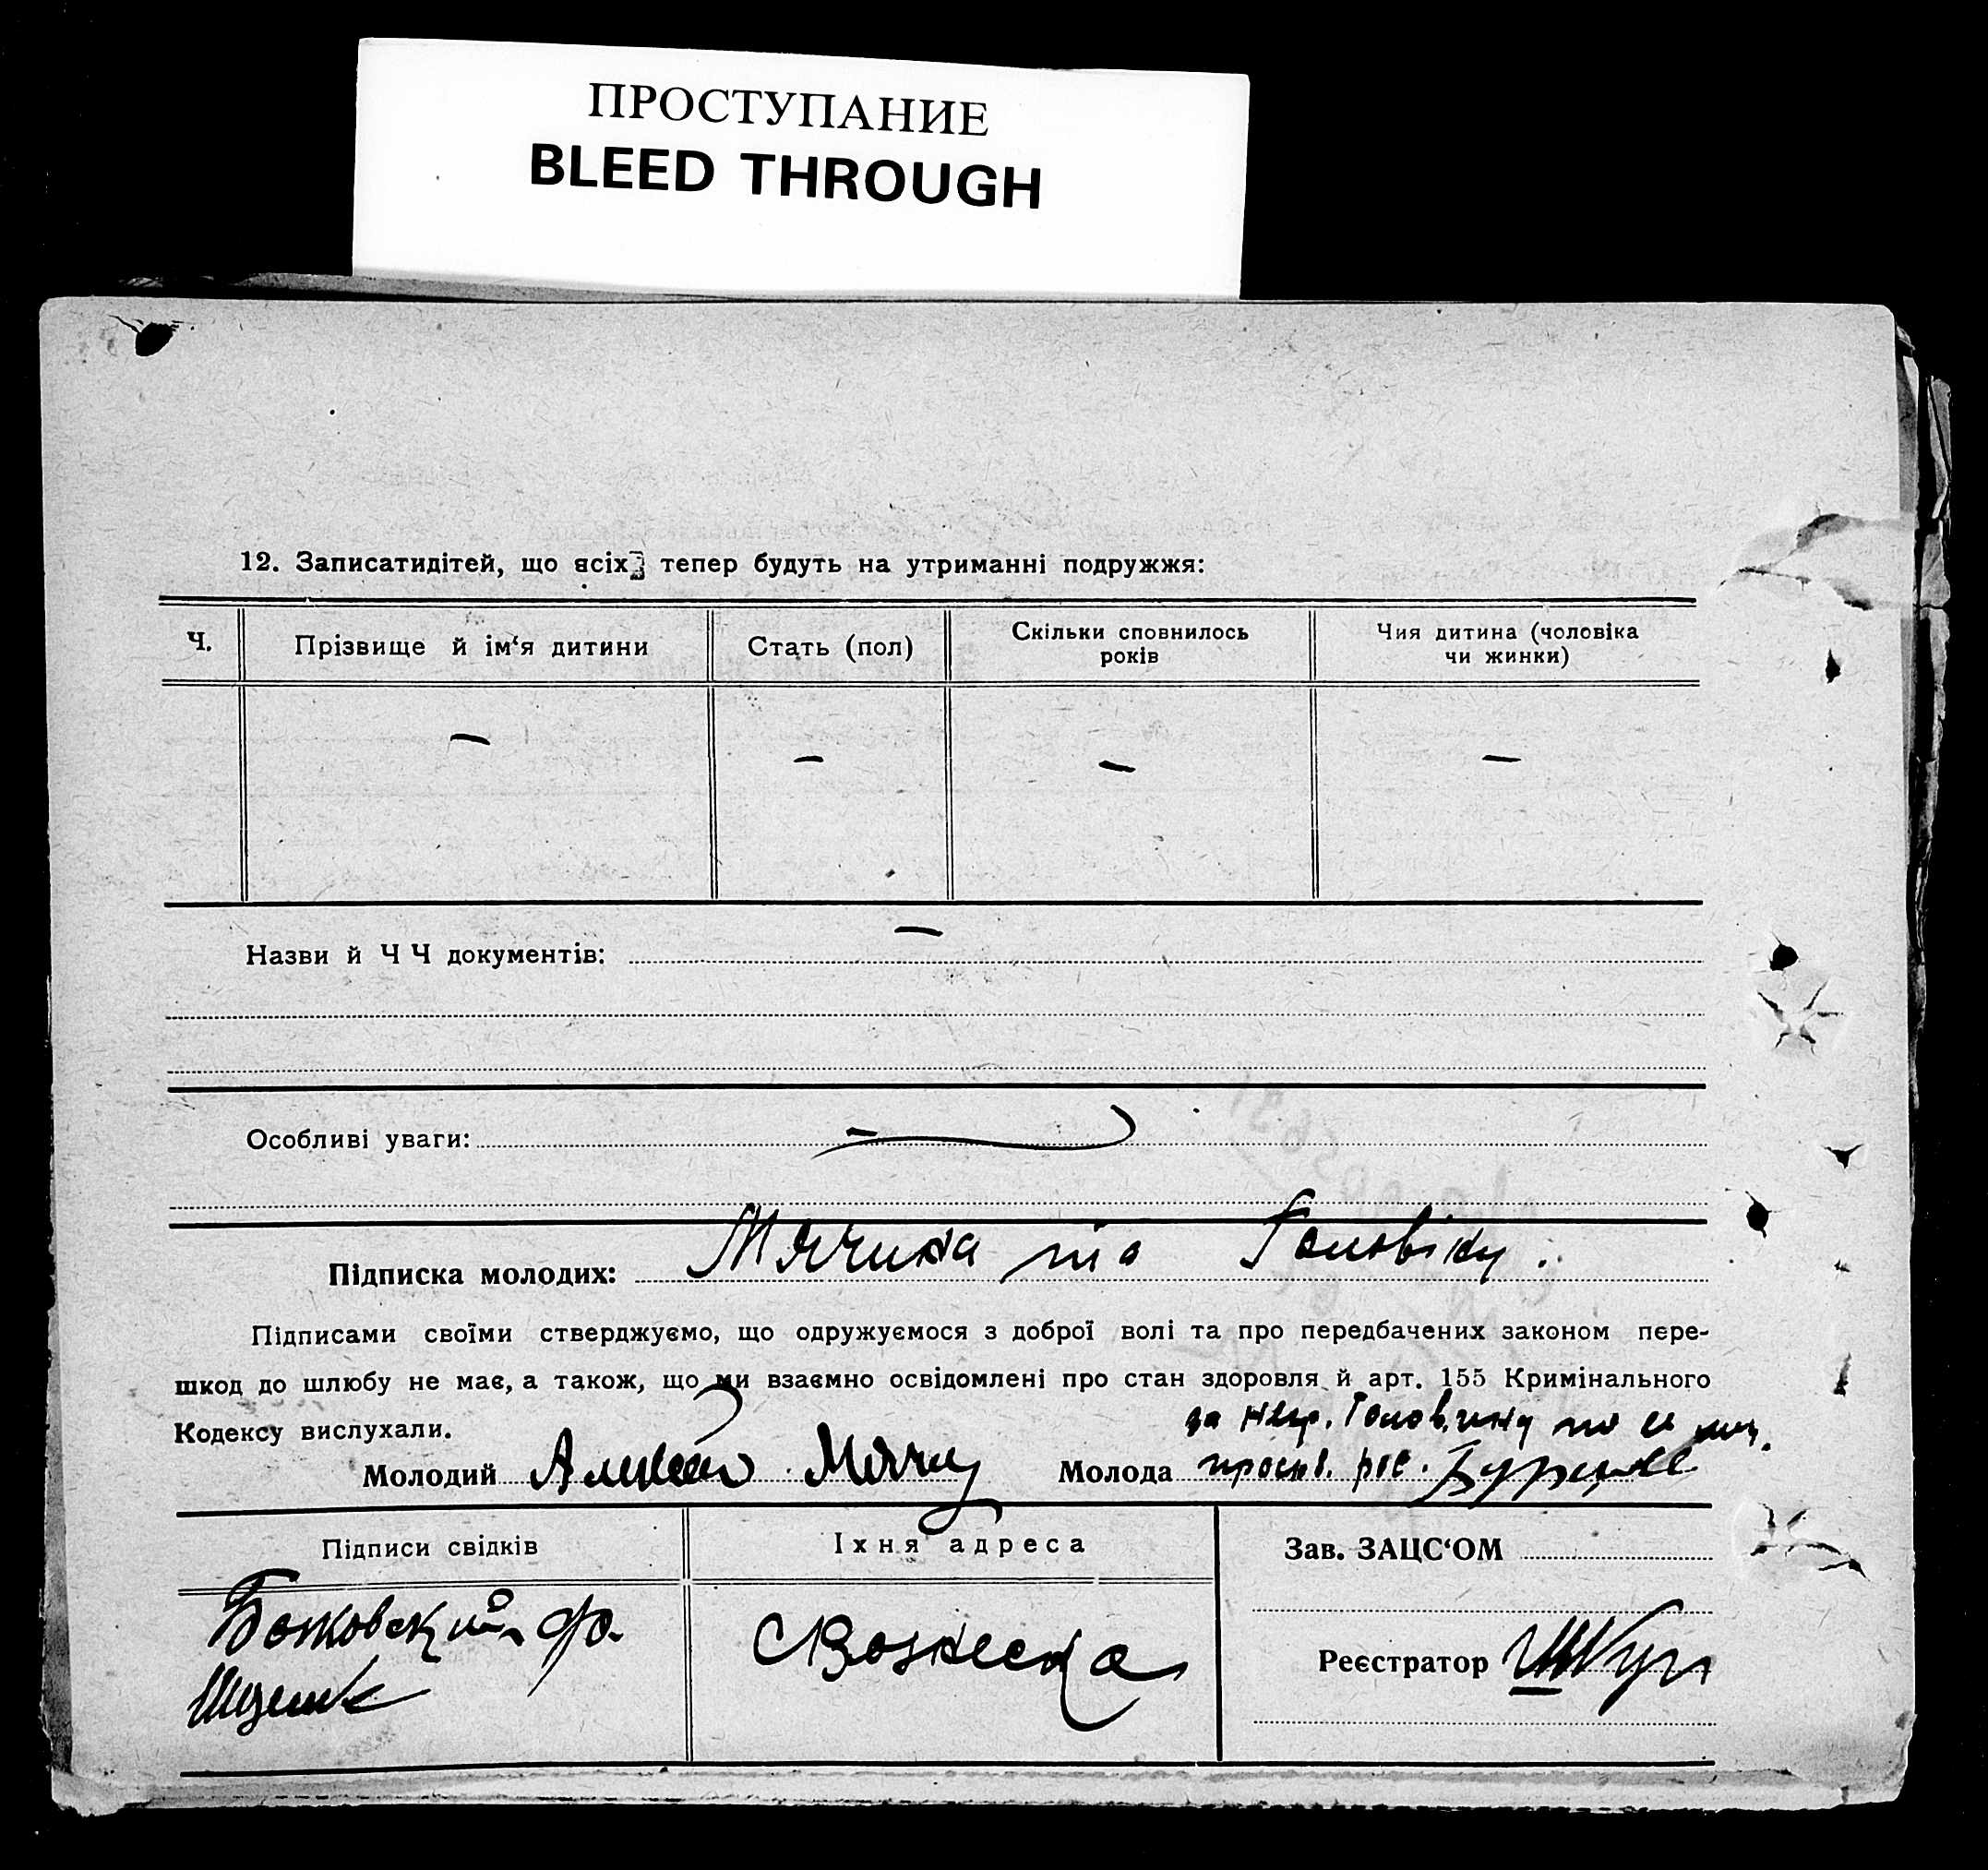 ПРОСТУПАНИЕ
BLEED THROUGH
12. Записатидітей, що всіх тепер будуть на утриманні подружжя:
Ч.
Прізвище й ім‘я дитини
Стать (пол)
Скільки сповнилось
років
Чия дитина (чоловіка
чи жинки)
— — — —
Назви й Ч Ч документів: —
Особливі уваги: —
Підписка молодих: Мячина
Підписами своїми стверджуємо, що одружуємося з доброї волі та про передбачених законом пере-
шкод до шлюбу не має, а також, що ми взаємно освідомлені про стан здоровля й арт. 155 Кримінального
Кодексу вислухали.
за негр.
Молодий
Молода
Підписи свідків
Їхня адреса
Зав. ЗАЦС‘ОМ
Реєстратор